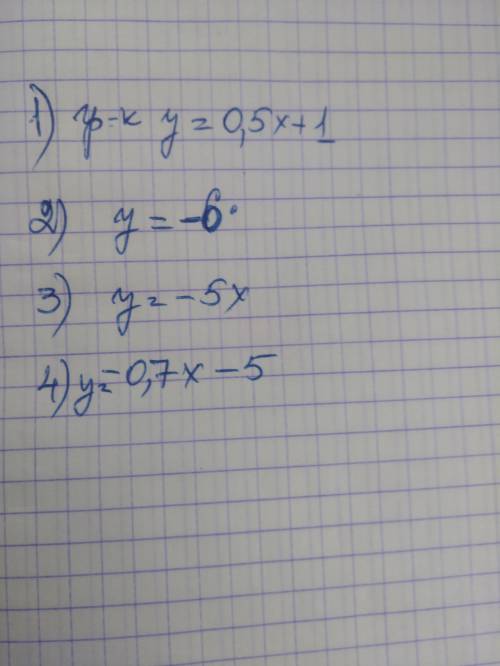 1) гр-к y = 0,5x + 1
2) y = -6.
3) y = -5x
4) y = -0,7x - 5